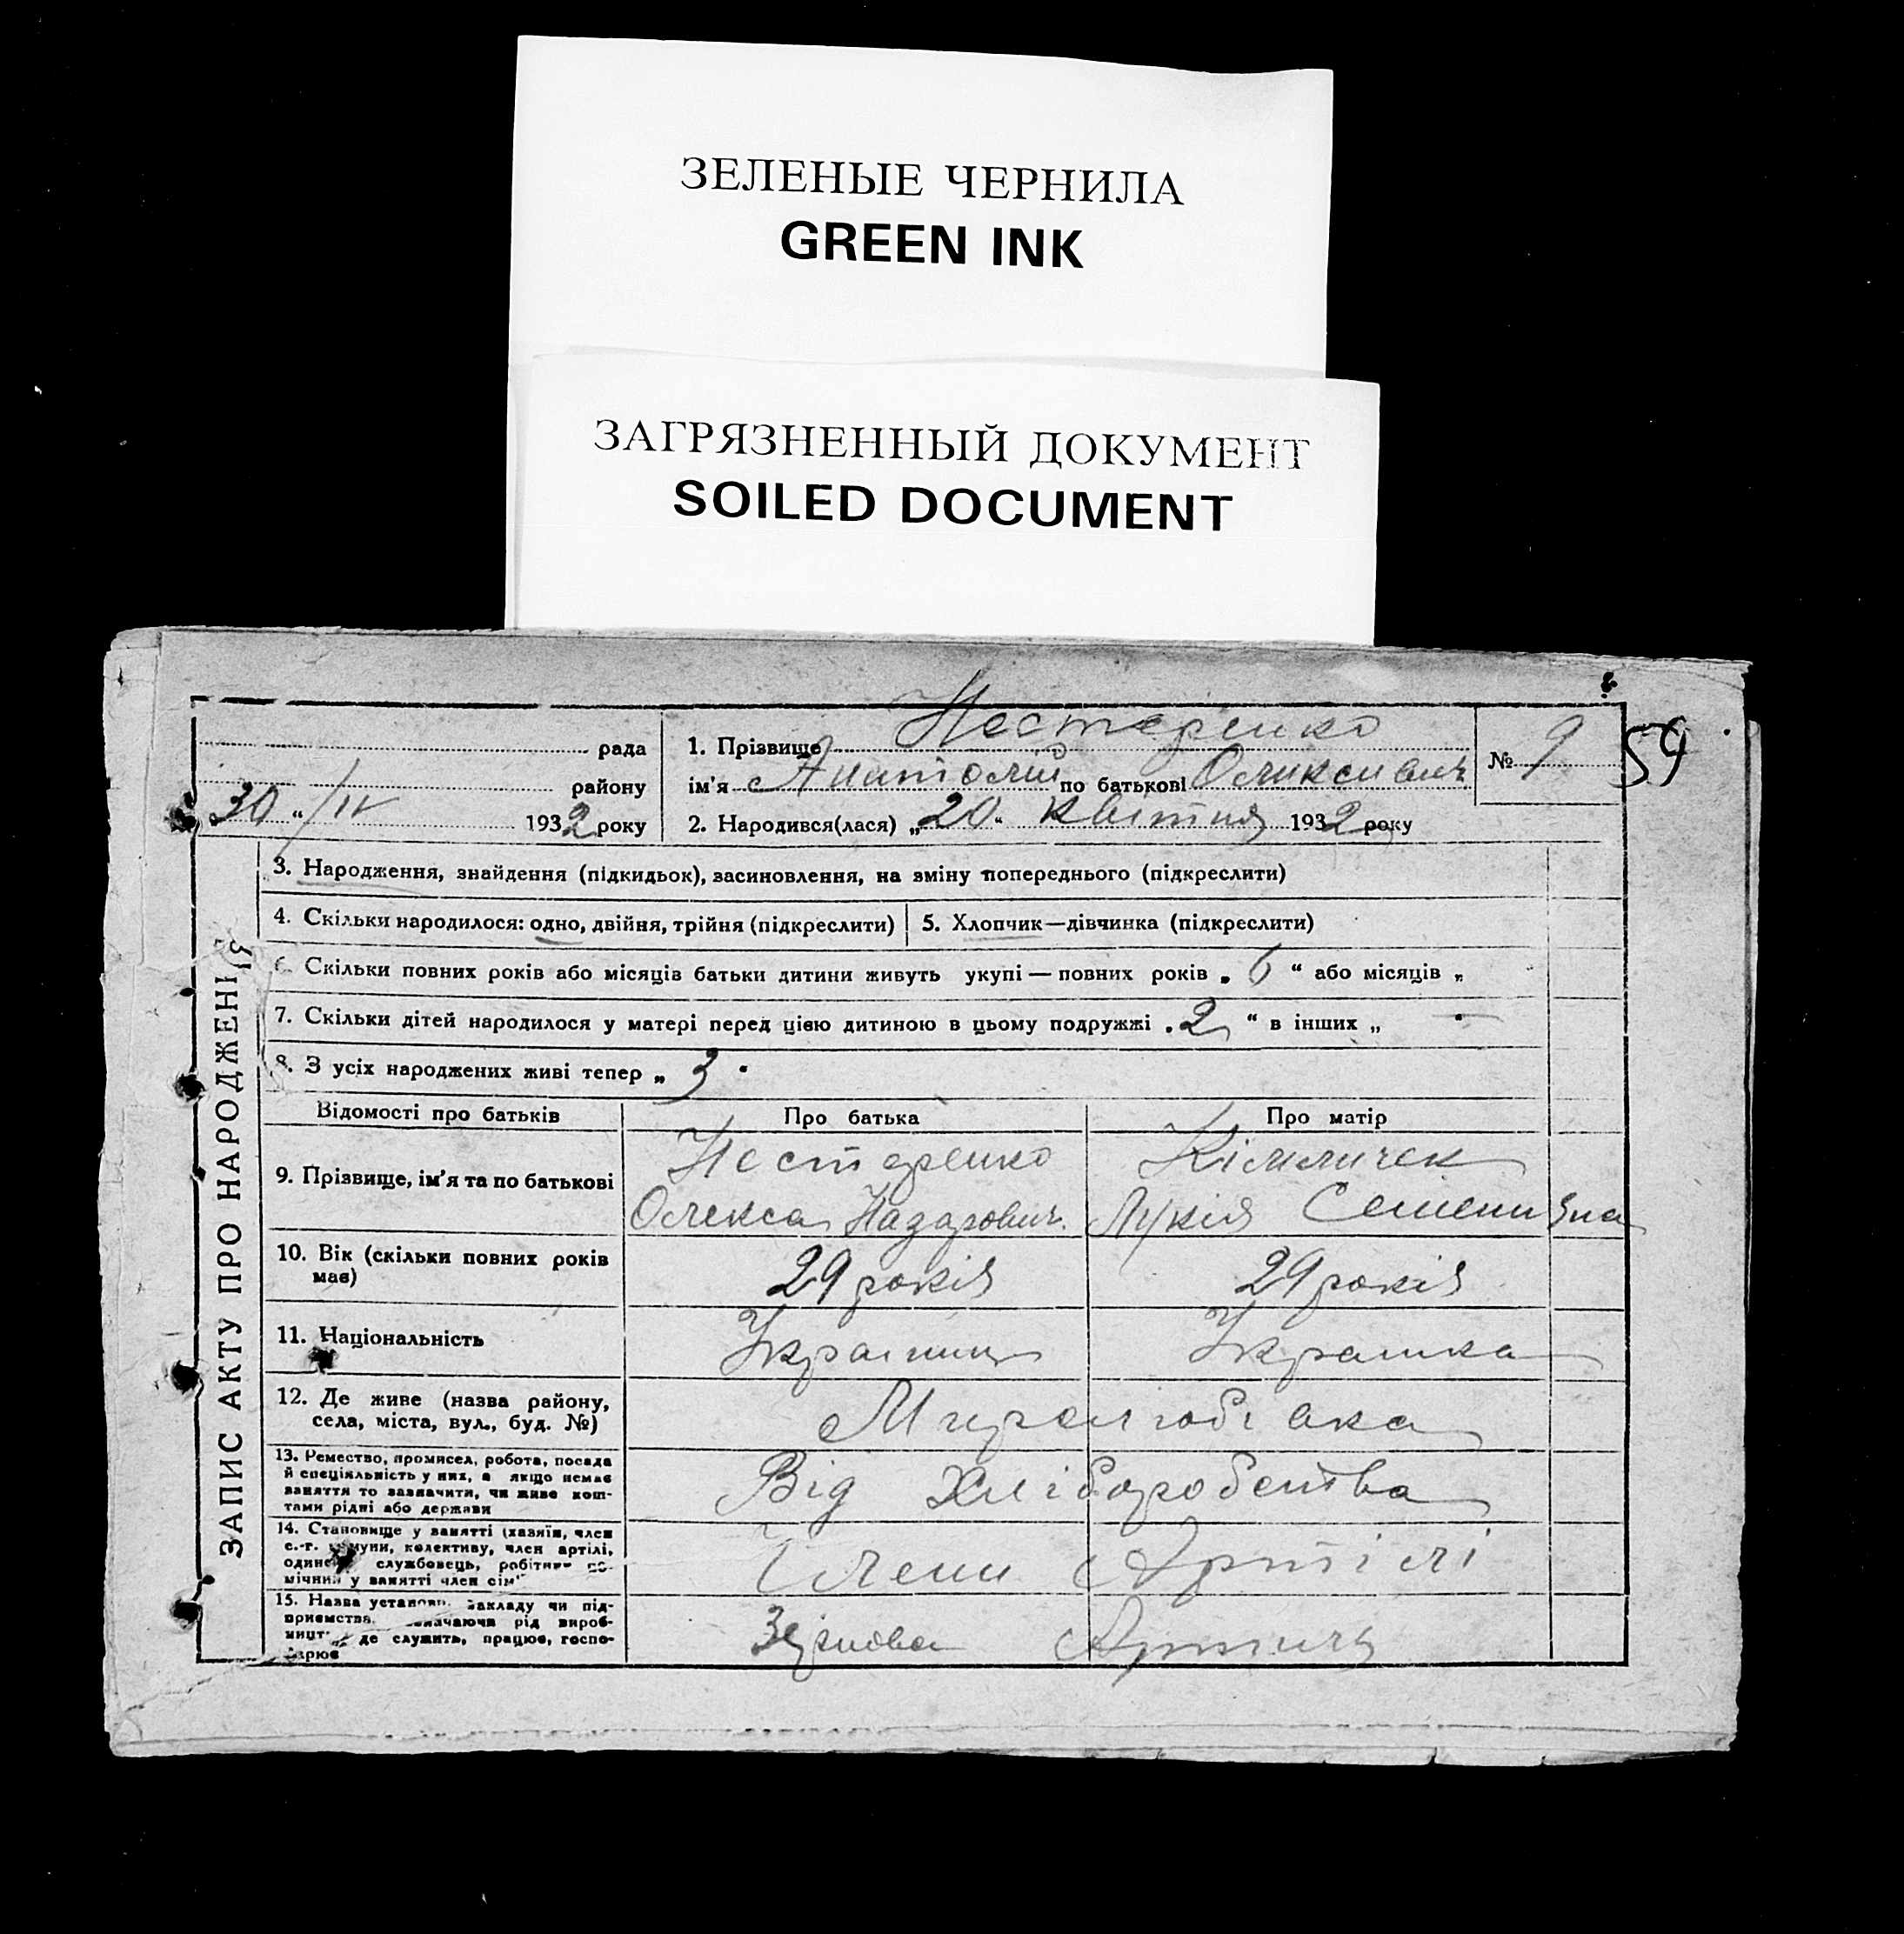 ЗЕЛЕНЫЕ ЧЕРНИЛА
GREEN INK
ЗАГРЯЗНЕННЫЙ ДОКУМЕНТ
SOILED DOCUMENT
рада
району
30 " /IV 1932 року
1. Прізвище Нестеренко
ім'я Анатолій по батькові Олексиевич
2. Народився(лася) „20" Квітня 1932 року
№ 9
59
ЗАПИС АКТУ ПРО НАРОДЖЕННЯ
3. Народження, знайдення (підкидьок), засиновлення, на зміну попереднього (підкреслити)
4. Скільки народилося: одно, двійня, трійня (підкреслити)
5. Хлопчик—дівчинка (підкреслити)
6. Скільки повних років або місяців батьки дитини живуть укупі — повних років „ 6 " або місяців „
7. Скільки дітей народилося у матері перед цією дитиною в цьому подружжі „ 2 " в інших „ - "
8. З усіх народжених живі тепер „ 3 "
Відомості про батьків
Про батька
Про матір
9. Прізвище, ім'я та по батькові
Нестеренко
Олекса Назарович
Лукія Семенівна
10. Вік (скільки повних років
має)
29 років
29 років
11. Національність
Українець
Українка
12. Де живе (назва району,
села, міста, вул., буд. №)
13. Ремество, промисел, робота, посада
й спеціяльність у них, а якщо немає
заняття то зазначити, чи живе кош-
тами рідні або держави
Від Хліборобства
14. Становище у занятті (хазяїн, член
с.-г. комуни, колективу, член артілі,
одинець, службовець, робітник по-
мічний у занятті член сім'ї
Члени Артілі
15. Назва установи, закладу чи під-
приємства, зазначаючи рід вироб-
ницт де служить, працює, госпо-
дарює
Зернова Артиль